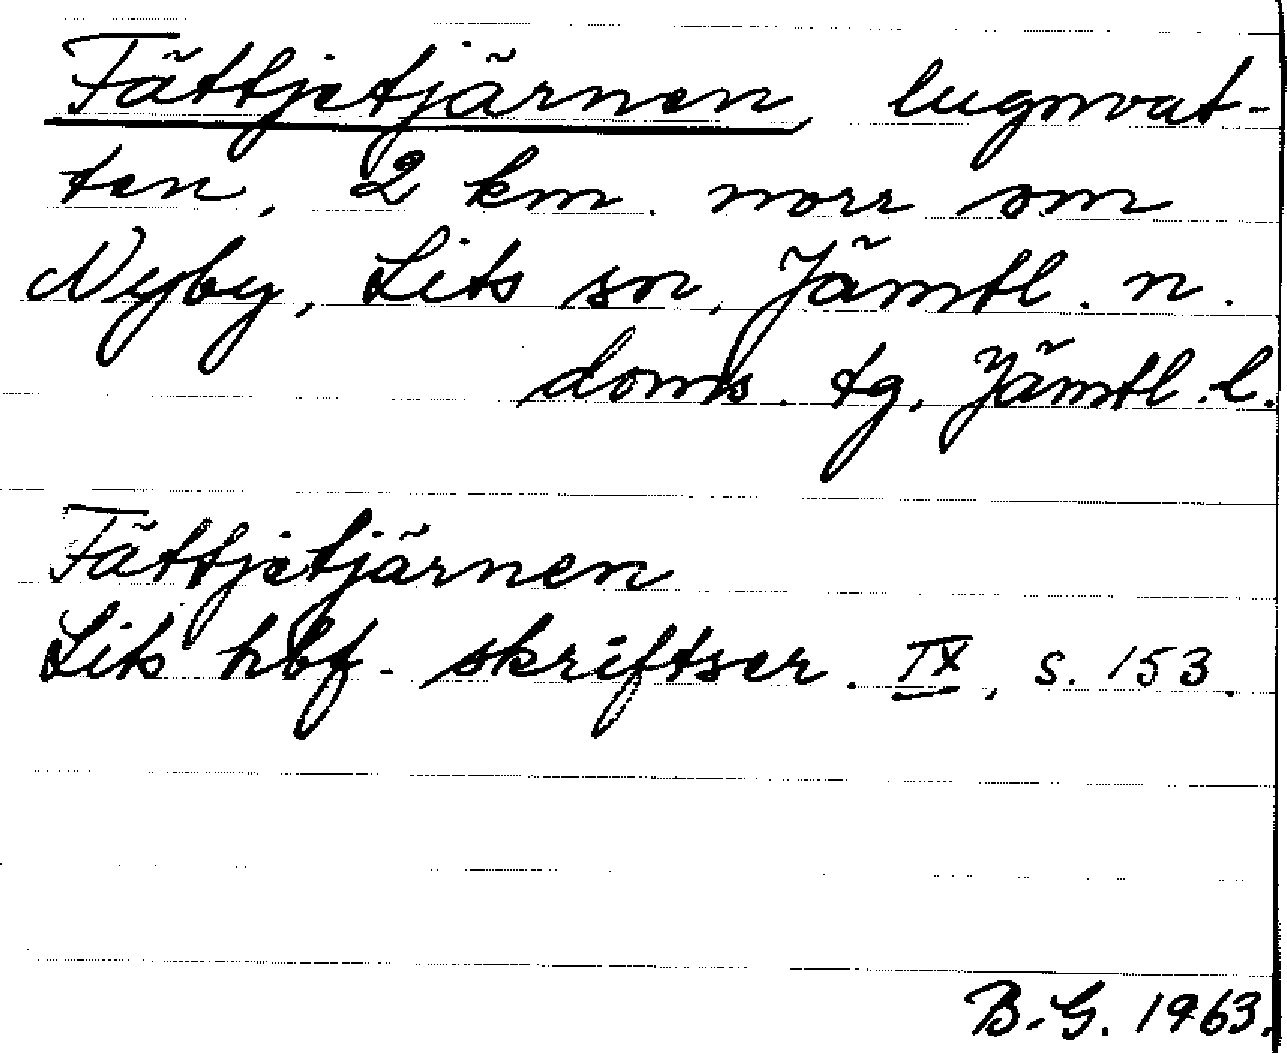 Fättjetjärnen, lugnvat-
ten, 2 km. norr om
Nyby, Lits sn, Jämtl. n.
doms. tg, Jämtl. l.
Fättjetjärnen
Lits hbf. skriftser. IX, s. 153.
B.G. 1963.